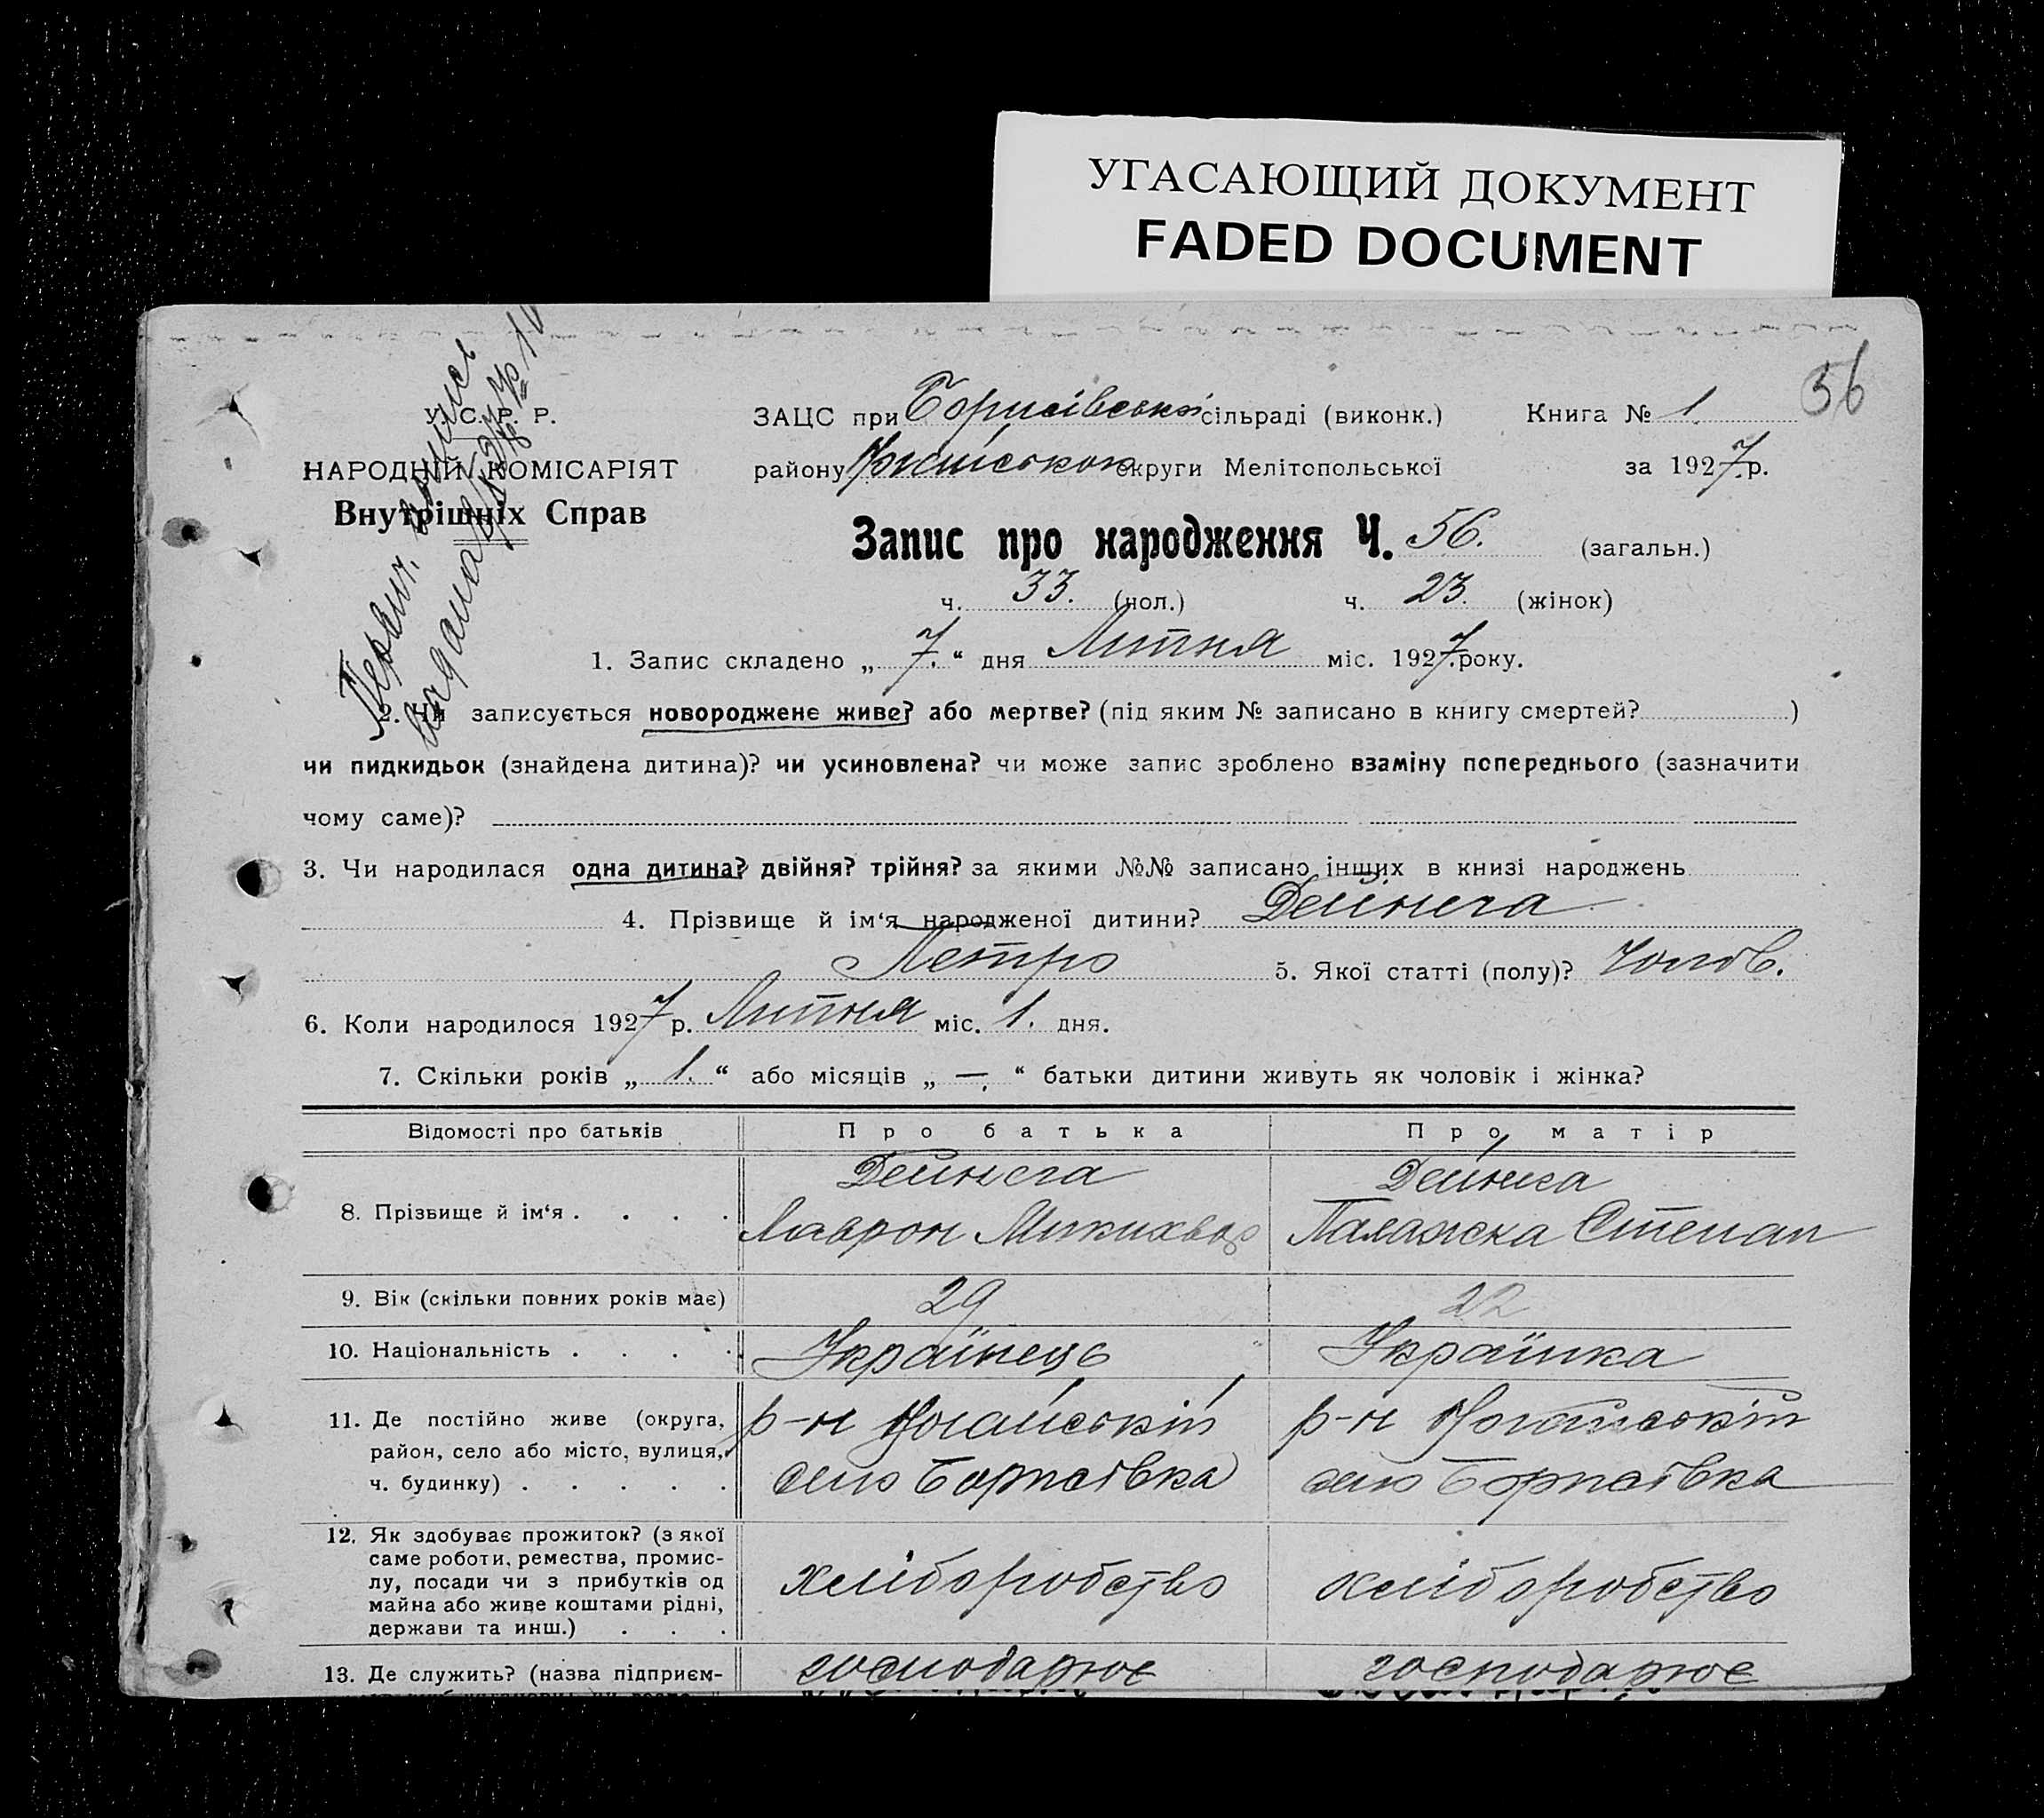 УГАСАЮЩИЙ ДОКУМЕНТ
FADED DOCUMENT
56
У. С. Р. Р.
НАРОДНІЙ КОМІСАРІЯТ
Внутрішніх Справ
ЗАЦС при Борисівській сільраді (виконк.) Книга № 1
району округи Мелітопольської за 1927 р.
Запис про народження Ч. 56. (загальн.)
ч. 33. (чол.) ч. 23. (жінок)
1. Запис складено „ 7. “ дня Липня міс. 1927. року.
2. Чи записується новороджене живе? або мертве? (під яким № записано в книгу смертей? )
чи пидкидьок (знайдена дитина)? чи усиновлена? чи може запис зроблено взаміну попереднього (зазначити
чому саме)?
3. Чи народилася одна дитина? двійня? трійня? за якими №№ записано інших в книзі народжень
4. Прізвище й ім‘я народженої дитини? Дейнега
Петро 5. Якої статті (полу)? Чолов.
6. Коли народилося 1927 р. Липня міс. 1. дня.
7. Скільки років „ 1. “ або місяців „ — “ батьки дитини живуть як чоловік і жінка?
Відомості про батьків Про батька Про матір
Дейнега Дейнега
8. Прізвище й ім‘я . . . . Лаврон Палажка Степан
9. Вік (скільки повних років має) 29 22
10. Національність . . . . Українець Українка
11. Де постійно живе (округа, р-н Ногайській р-н Ногайській
район, село або місто, вулиця,
ч. будинку) . . . . . село Борисівка село Борисівка
12. Як здобуває прожиток? (з якої
саме роботи, ремества, промис-
лу, посади чи з прибутків од хліборобство хліборобство
майна або живе коштами рідні,
держави та инш.) . . .
13. Де служить? (назва підприєм- господарює господарює